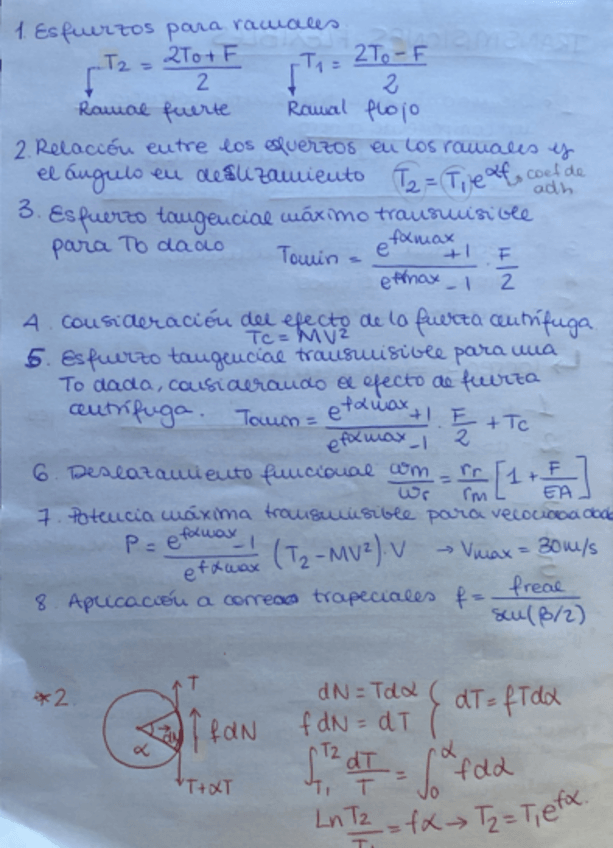 1. Esfuerzos para ramales
T₂ = (2T₀ + F)/2 T₁ = (2T₀ - F)/2
Ramal fuerte Ramal flojo
2. Relación entre los esfuerzos en los ramales y
el ángulo en deslizamiento T₂ = T₁e^(αf) → coef de adh
3. Esfuerzo tangencial máximo transmisible
para To dado Tomin = (e^(fαmax) + 1)/(e^(fαmax) - 1) · F/2
4. Consideración del efecto de la fuerza centrífuga
Tc = MV²
5. Esfuerzo tangencial transmisible para una
To dada, considerando el efecto de fuerza
centrífuga. Tomin = (e^(fαmax) + 1)/(e^(fαmax) - 1) · F/2 + Tc
6. Deslazamiento funcional ωm/ωr = rr/rm [1 + F/EA]
7. Potencia máxima transmisible para velocidad dada
P = (e^(fαmax) - 1)/(e^(fαmax)) (T₂ - MV²) · V → Vmax = 30m/s
8. Aplicación a correas trapeciales f = freal/sen(β/2)
*2. T
α fdN
T+αT
dN = Tdα
fdN = dT { dT = fTdα
∫_T₁^T₂ dT/T = ∫_0^α fdα
Ln T₂/T₁ = fα → T₂ = T₁e^(fα).